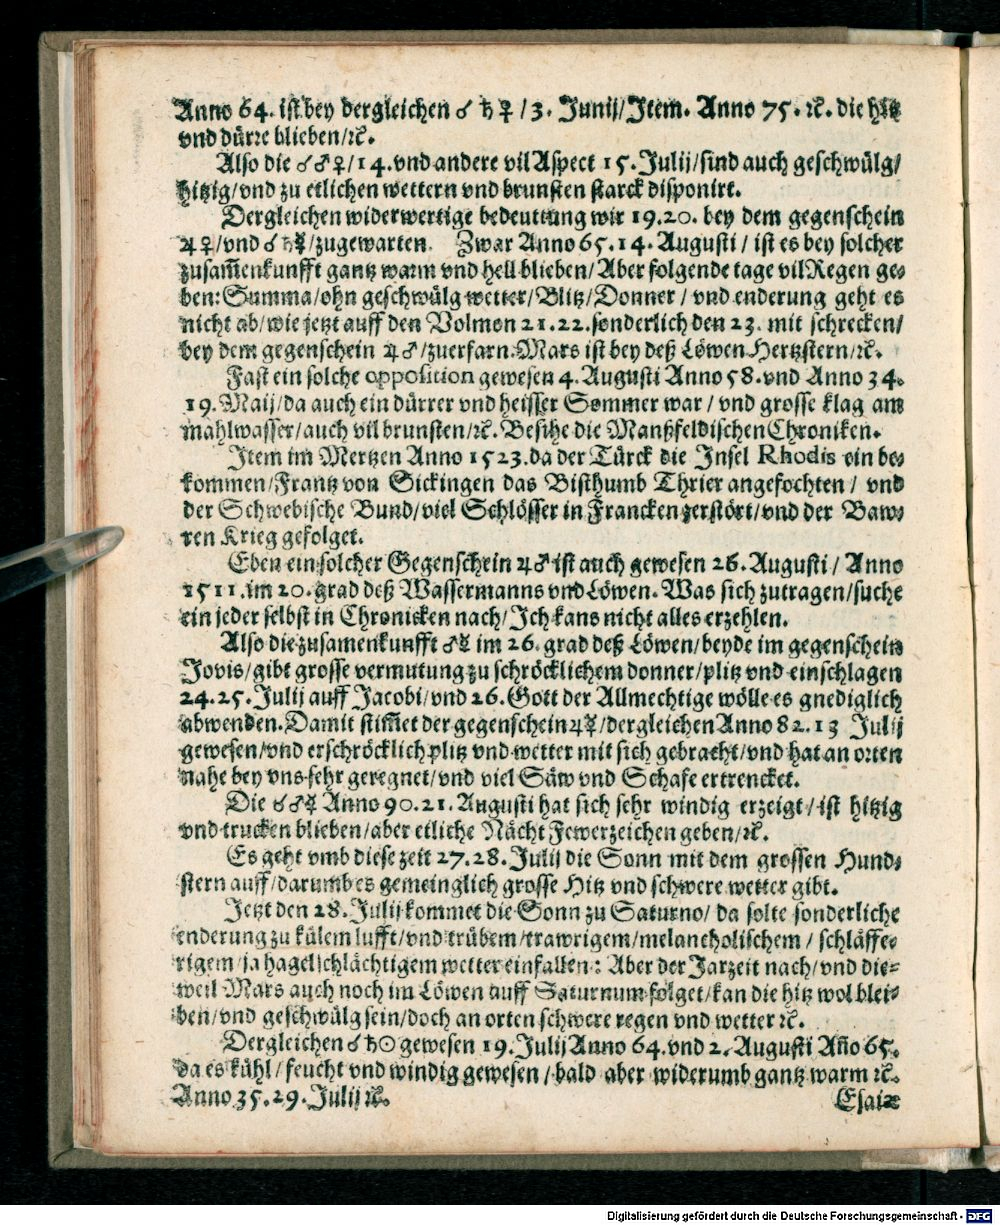 Anno 64. ist bey dergleichen ☌ ♄ ♀ / 3. Junij/ Item. Anno 75. ꝛc. die hitz
vnd dürre blieben/ꝛc.
Also die ☌♂♀/14. vnd andere vil Aspect 15. Julij/sind auch geschwülg/
hitzig/vnd zu etlichen wettern vnd brunsten starck disponirt.
Dergleichen widerwertige bedeuttung wir 19.20. bey dem gegenschein
♃♀/vnd ☌♄☿/zugewarten. Zwar Anno 65. 14. Augusti / ist es bey solcher
zusam̃enkunfft gantz warm vnd hell blieben/ Aber folgende tage vil Regen ge-
ben: Summa/ohn geschwülg wetter/Blitz/Donner / vnd enderung geht es
nicht ab/wie jetzt auff den Volmon 21.22. sonderlich den 23. mit schrecken/
bey dem gegenschein ♃♂/zuerfarn. Mars ist bey deß Löwen Hertzstern/ꝛc.
Fast ein solche opposition gewesen 4. Augusti Anno 58. vnd Anno 34.
19. Maij/da auch ein dürrer vnd heisser Sommer war / vnd grosse klag am
mahlwasser/auch vil brunsten/ꝛc. Besihe die Manßfeldischen Chroniken.
Item im Mertzen Anno 1523. da der Türck die Insel Rhodis ein be-
kommen/Frantz von Sickingen das Bisthumb Thrier angefochten / vnd
der Schwebische Bund/viel Schlösser in Francken zerstört/vnd der Baw-
ren Krieg gefolget.
Eben ein solcher Gegenschein ♃♂ ist auch gewesen 26. Augusti / Anno
1511. im 20. grad deß Wassermanns vnd Löwen. Was sich zutragen/suche
ein jeder selbst in Chronicken nach/ Ich kans nicht alles erzehlen.
Also die zusamenkunfft ♂☿ im 26. grad deß Löwen/beyde im gegenschein
Jovis/gibt grosse vermutung zu schröcklichem donner/plitz vnd einschlagen
24.25. Julij auff Jacobi/vnd 26. Gott der Allmechtige wölle es gnediglich
abwenden. Damit stim̃et der gegenschein ♃☿/dergleichen Anno 82. 13 Julij
gewesen/vnd erschröcklich plitz vnd wetter mit sich gebracht/vnd hat an orten
nahe bey vns sehr geregnet/vnd viel Säw vnd Schafe ertrencket.
Die ☌♂☿ Anno 90. 21. Augusti hat sich sehr windig erzeigt / ist hitzig
vnd trucken blieben/aber etliche Nächt Fewerzeichen geben/ꝛc.
Es geht vmb diese zeit 27.28. Julij die Sonn mit dem grossen Hund-
stern auff/darumb es gemeinglich grosse Hitz vnd schwere wetter gibt.
Jetzt den 28. Julij kommet die Sonn zu Saturno/ da solte sonderliche
enderung zu külem lufft/vnd trübem/trawrigem/melancholischem / schläffe-
rigem/ja hagelschlächtigem wetter einfallen: Aber der Jarzeit nach/vnd die-
weil Mars auch noch im Löwen auff Saturnum folget/kan die hitz wol blei-
ben/vnd geschwülg sein/doch an orten schwere regen vnd wetter ꝛc.
Dergleichen ☌♄☉ gewesen 19. Julij Anno 64. vnd 2. Augusti Año 65.
da es kühl / feucht vnd windig gewesen / bald aber widerumb gantz warm ꝛc.
Anno 35. 29. Julij ꝛc.
Esaiæ
Digitalisierung gefördert durch die Deutsche Forschungsgemeinschaft - DFG